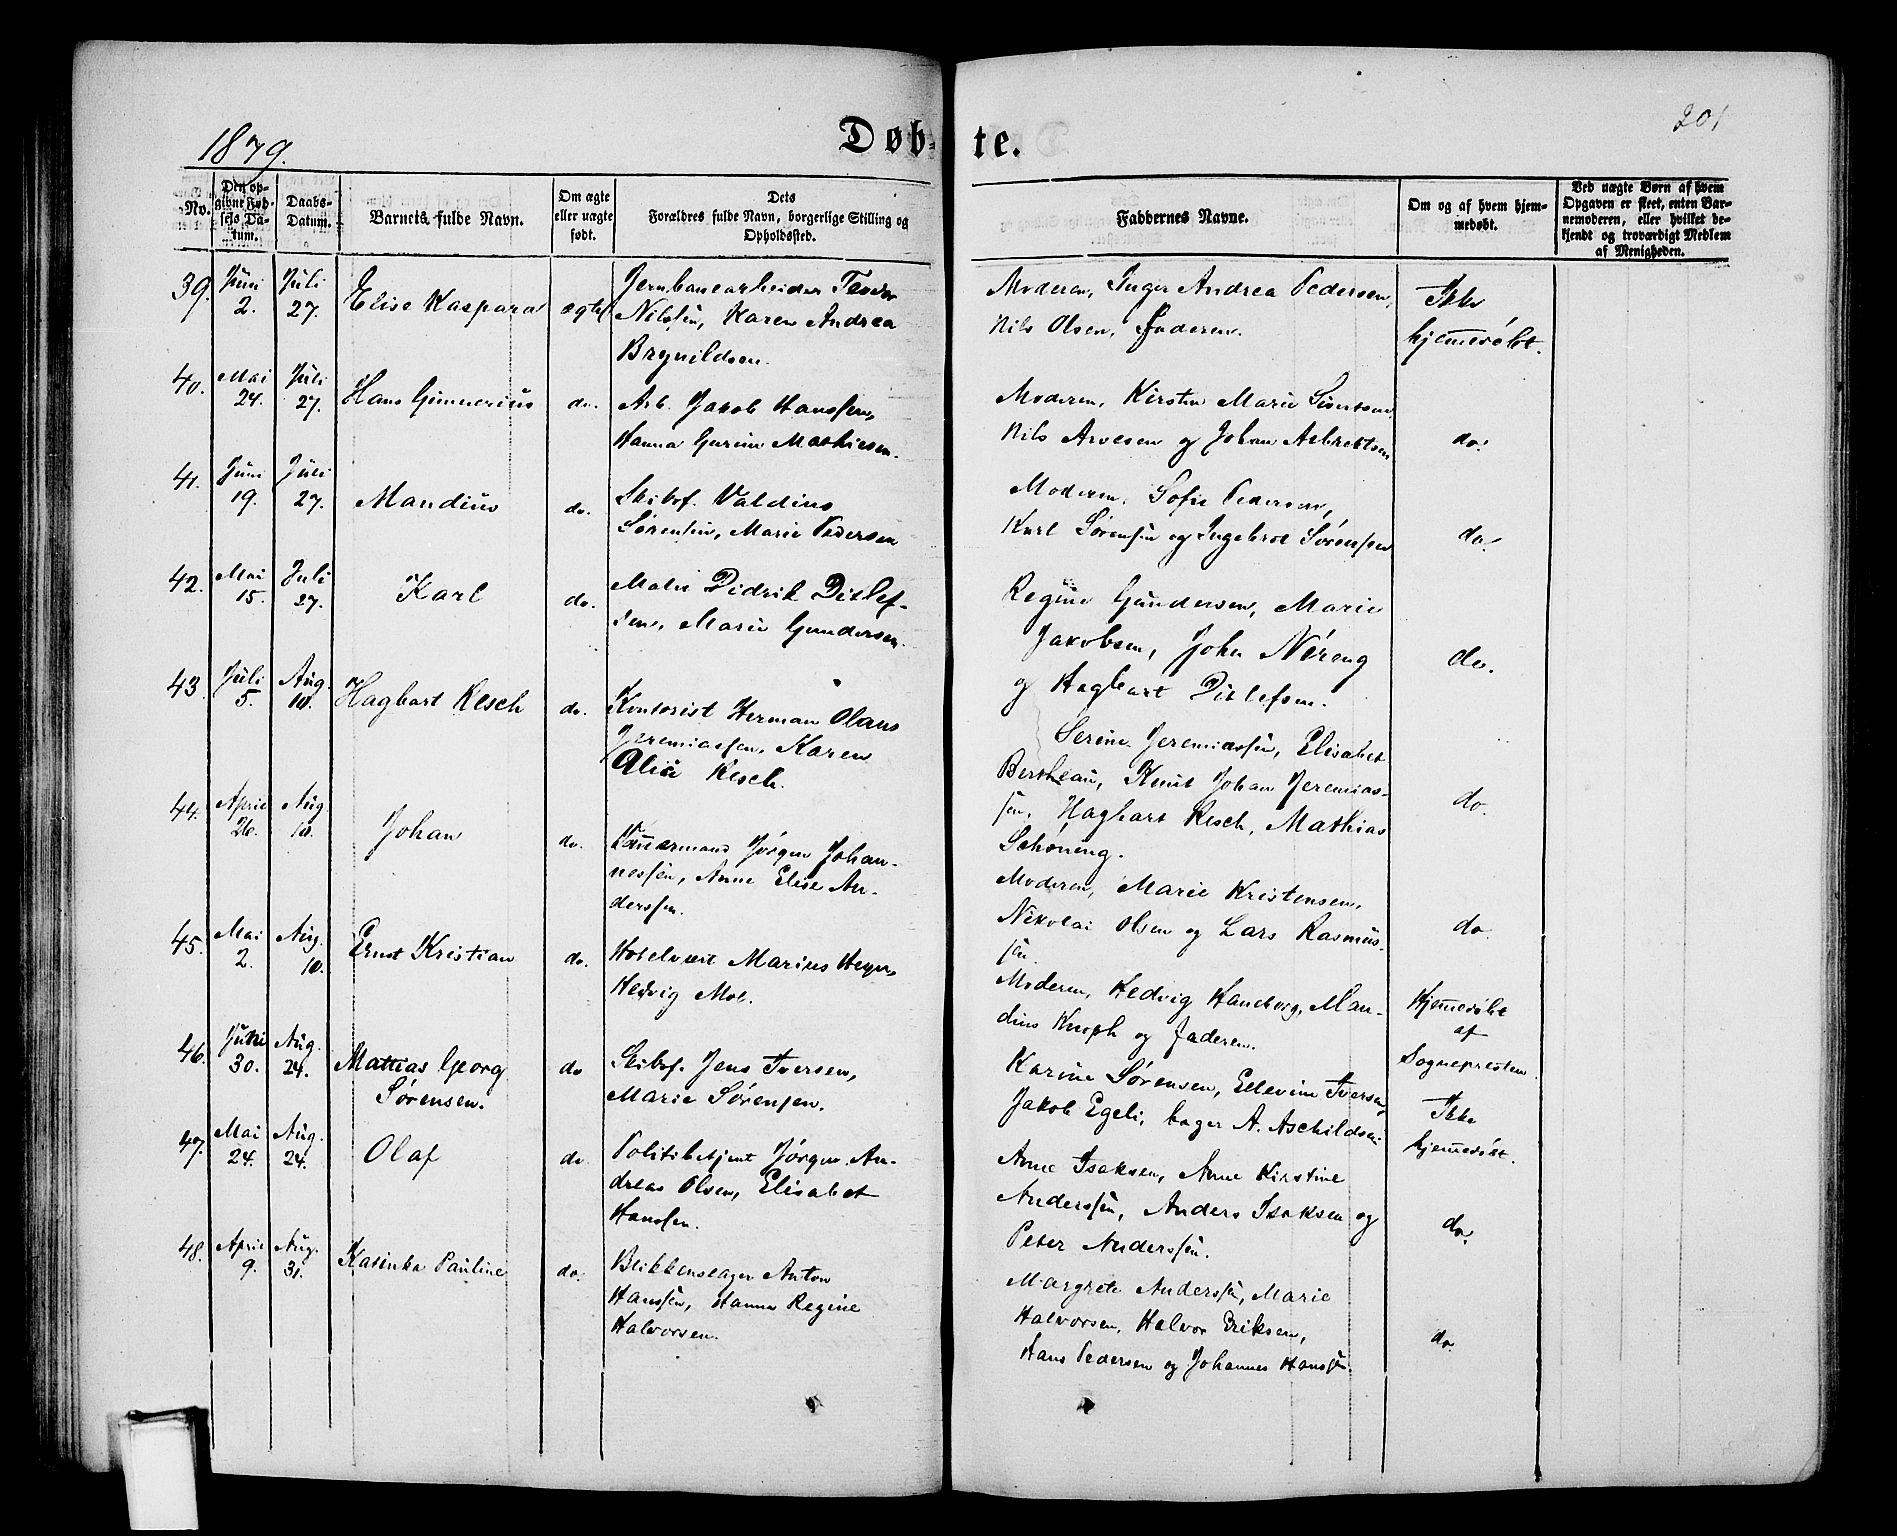 1879.
Døb-
te.
201
No.
Den op-
givne Fød-
sels Da-
tum.
Daabs-
Datum.
Barnets fulde Navn.
Om ægte
eller uægte
født.
Dets
Forældres fulde Navn, borgerlige Stilling og
Opholdssted.
Faddernes Navne.
Om og af hvem hjem-
medøbt.
Ved uægte Børn af hvem
Opgaven er skeet, enten Bar-
nemoderen, eller hvilket be-
kjendt og troværdigt Medlem
af Menigheden.
39. Juni 2. Juli 27. Elise Kaspara ægte
Jernbanearbeider
Nilssen, Karen Andrea
Brynildsen.
Moderen, Inger Andrea Pedersen,
Nils Olsen, Faderen.
Ikke
hjemmedøbt.
40. Mai 24. Juli 27. Hans Gunnerius do.
Arb. Jakob Hanssen,
Hanna Gurine Mathiesen.
Moderen, Kirsten Marie Sivertsen,
Nils Arvesen og Johan Albrektsen
do.
41. Juni 19. Juli 27. Mandius do.
Skibsf. Valdius
Sørensen, Marie Pedersen
Moderen, Sofie Pedersen,
Karl Sørensen og Ingebret Sørensen
do.
42. Mai 15. Juli 27. Karl do.
Maler Didrik Ditlef-
sen, Marie Gundersen.
Regine Gundersen, Marie
Jakobsen, John Nøreng
og Hagbart Ditlefsen.
do.
43. Juli 5. Aug. 10. Hagbart Resch do.
Kontorist Herman Olaus
Jeremiassen, Karen
Alia Resch.
Serine Jeremiassen, Elisabet
Bertheau, Knut Johan Jeremias-
sen, Hagbart Resch, Mathias
Schøneng.
do.
44. April 26. Aug. 10. Johan do.
Jørgen Johan-
nessen, Anne Elise An-
derssen.
Moderen, Marie Kristensen,
Nikolai Olsen og Lars Rasmus-
sen.
do.
45. Mai 2. Aug. 10. Ernst Kristian do.
Hotelvert Marius Heyer,
Hedvig Moe.
Moderen, Hedvig Haneborg, Man-
dius Knoph og Faderen.
Hjemmedøbt
af
Sognepresten.
46. Juni 30. Aug. 24. Mattias Georg
Sørensen. do
Skibsf. Jens Iversen,
Marie Sørensen.
Karine Sørensen, Ellevine Iversen,
Jakob Egeli, bager A. Aschildsen.
Ikke
hjemmedøbt.
47. Mai 24. Aug. 24. Olaf do.
Politibetjent Jørgen An-
dreas Olsen, Elisabet
Hanssen.
Anne Isaksen, Anne Kirstine
Anderssen, Anders Isaksen og
Peter Anderssen.
do.
48. April 9. Aug. 31. Katinka Pauline do.
Blikkenslager Anton
Hanssen, Hanna Regine
Halvorsen.
Margrete Anderssen, Marie
Halvorsen, Halvor Eriksen,
Hans Pedersen og Johannes Hanssen.
do.